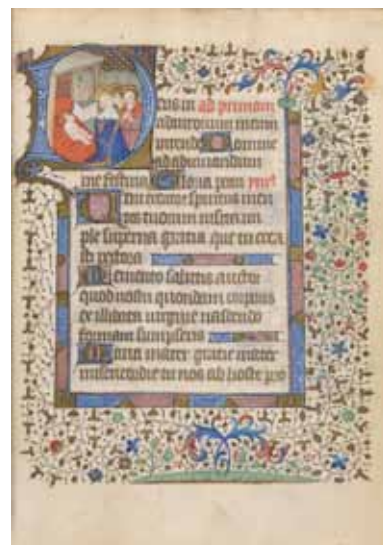 Deus in ad primam
adiutorium meum
intende Domine
ad adiuvandum
me festina Gloria patri
Veni creator spiritus men
tes tuorum visita im
ple superna gratia que tu crea
sti pectora
Memento salutis auctor
quod nostri quondam corporis
ex illibata virgine nascendo
formam sumpseris
Maria mater gratie mater
misericordie tu nos ab hoste pro